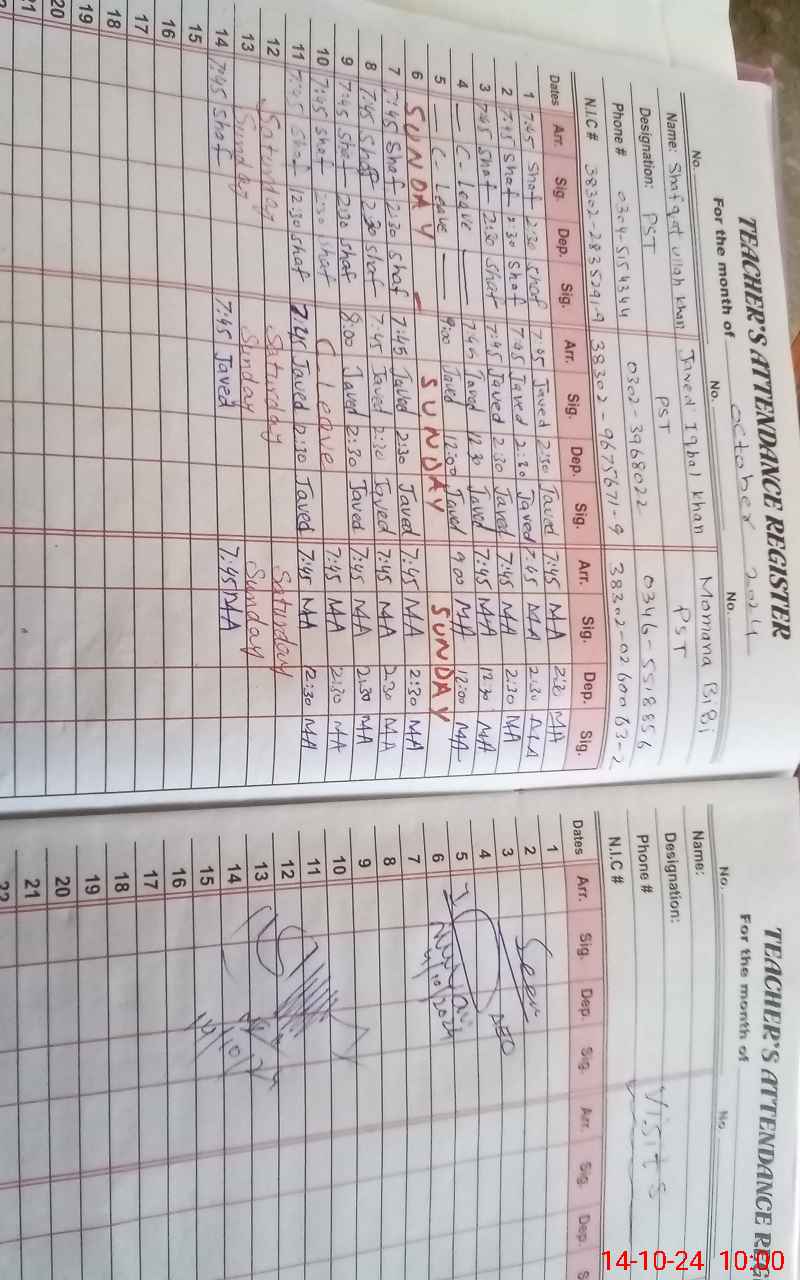 TEACHER'S ATTENDANCE REGISTER
For the month of October 2024
No. No. No.
Name: Shafqat ullah khan Javed Iqbal khan Momana BiBi
Designation: PST PST PST
Phone # 0304-5154344 0302-3968022 0346-5518856
N.I.C # 38302-2835291-9 38302-9675671-9 38302-0260063-2
Dates Arr. Sig. Dep. Sig. Arr. Sig. Dep. Sig. Arr. Sig. Dep. Sig.
1 7:45 Shaf 2:30 Shaf 7:45 Javed 2:30 Javed 7:45 MA 2:30 MA
2 7:45 Shaf 2:30 Shaf 7:45 Javed 2:30 Javed 7:45 MA 2:30 MA
3 7:45 Shaf 2:30 Shaf 7:45 Javed 2:30 Javed 7:45 MA 2:30 MA
4 — C-Leave — 7:45 Javed 12:30 Javed 7:45 MA 12:30 MA
5 — C-Leave — 9:00 Javed 12:00 Javed 9:00 MA 12:00 MA
6 SUNDAY — SUNDAY SUNDAY
7 7:45 Shaf 2:30 Shaf 7:45 Javed 2:30 Javed 7:45 MA 2:30 MA
8 7:45 Shaf 2:30 Shaf 7:45 Javed 2:30 Javed 7:45 MA 2:30 MA
9 7:45 Shaf 2:30 Shaf 8:00 Javed 2:30 Javed 7:45 MA 2:30 MA
10 7:45 Shaf 2:30 Shaf C Leave 7:45 MA 2:30 MA
11 7:45 Shaf 12:30 Shaf 7:45 Javed 12:30 Javed 7:45 MA 12:30 MA
12 Saturday Saturday Saturday
13 Sunday Sunday Sunday
14 7:45 Shaf 7:45 Javed 7:45 MA
15
16
17
18
19
20
21
TEACHER'S ATTENDANCE REG
For the month of
No. No.
Name:
Designation: Visits
Phone #
N.I.C #
Dates Arr. Sig. Dep. Sig. Arr. Sig. Dep. S
1
2 Seen
3 AEO
4
5
6 4/10/2024
7
8
9
10
11
12
13
14 14/10/24
15
16
17
18
19
20
21
22
14-10-24 10:00